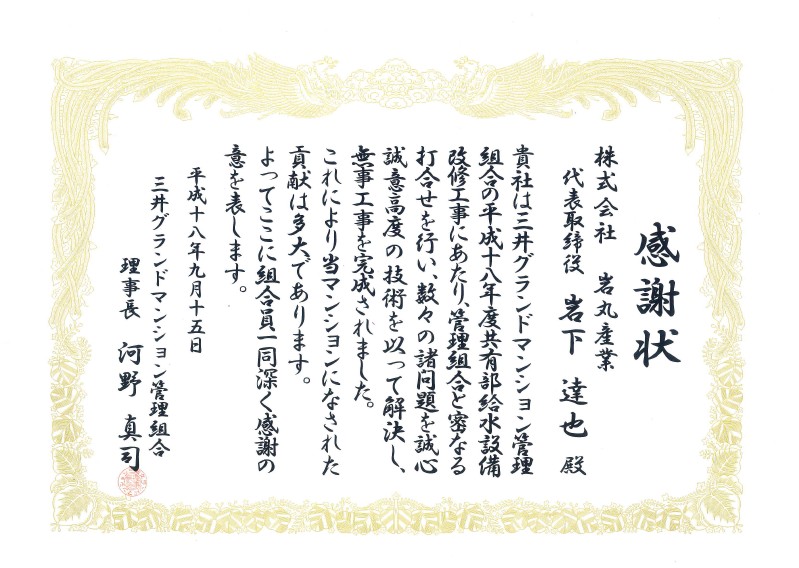 感謝状
株式会社 岩丸産業
代表取締役 岩下 達也 殿
貴社は三井グランドマンション管理
組合の平成十八年度共有部給水設備
改修工事にあたり、管理組合と密なる
打合せを行い、数々の諸問題を誠心
誠意高度の技術を以って解決し、
無事工事を完成されました。
これにより当マンションになされた
貢献は多大であります。
よってここに組合員一同深く感謝の
意を表します。
平成十八年九月十五日
三井グランドマンション管理組合
理事長 河野 真司